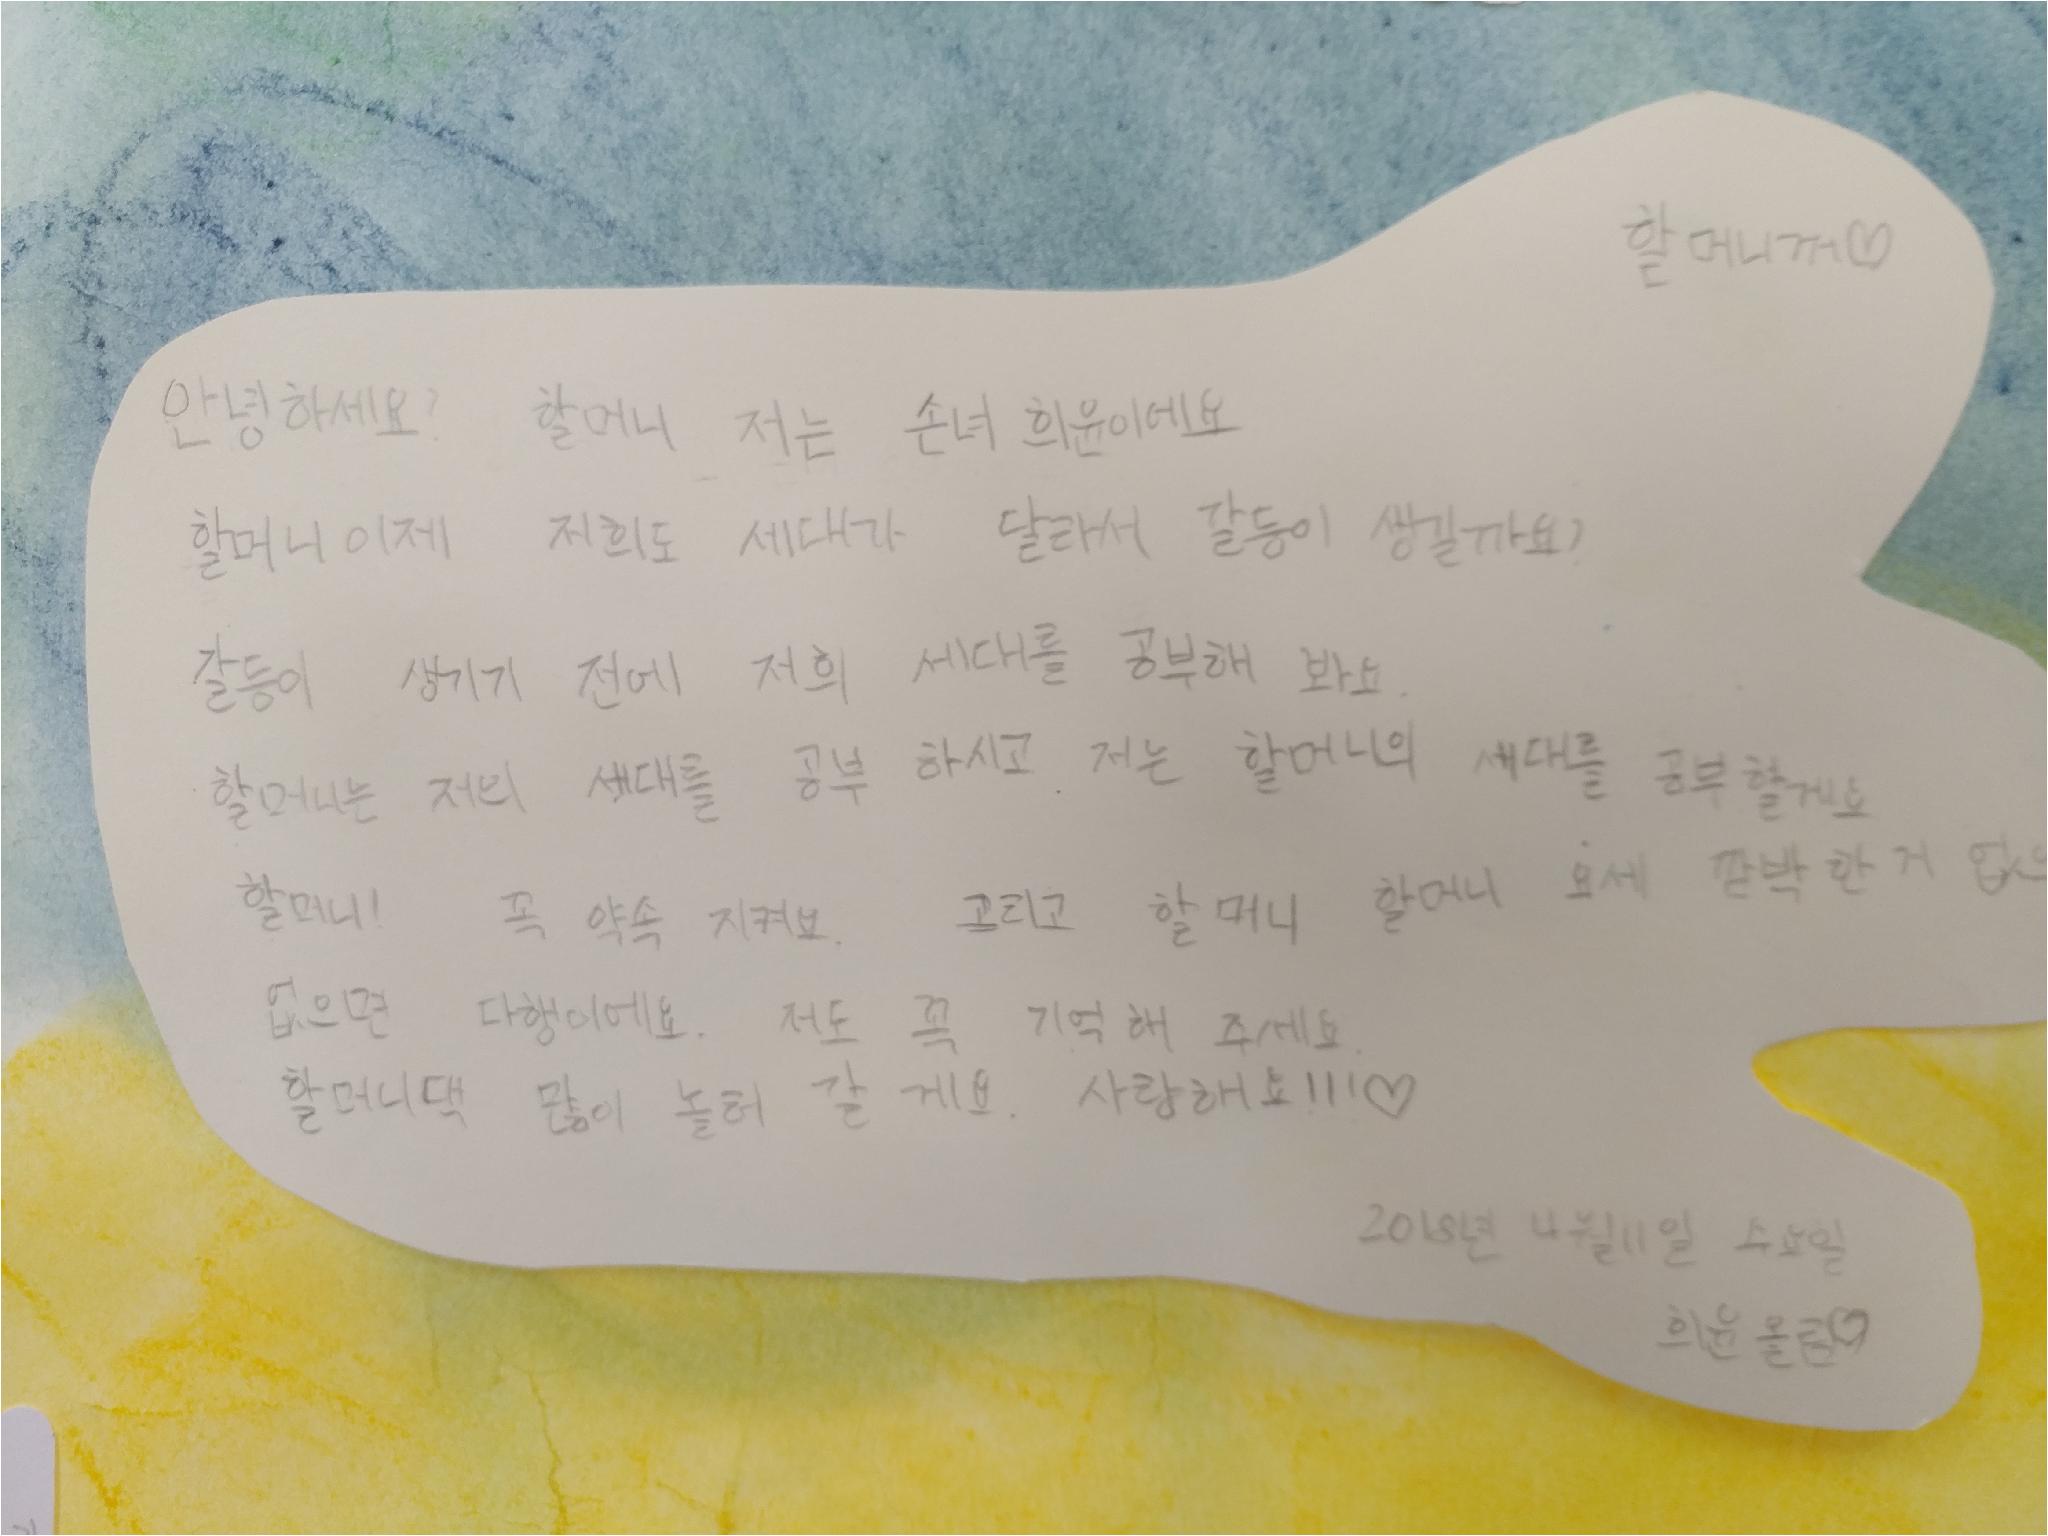 할머니꺼♡
안녕하세요? 할머니 저는 손녀 희윤이에요
할머니 이제 저희도 세대가 달라서 갈등이 생길까요?
갈등이 생기기 전에 저희 세대를 공부해 봐요.
할머니는 저희 세대를 공부 하시고 저는 할머니의 세대를 공부할게요
할머니! 꼭 약속 지켜요. 그리고 할머니 할머니 요세 깜박 한 거 없으
없으면 다행이에요. 저도 꼭 기억해 주세요.
할머니댁 많이 놀러 갈 게요. 사랑해요!!!♡
2018년 4월11일 수요일
희윤 올림♡